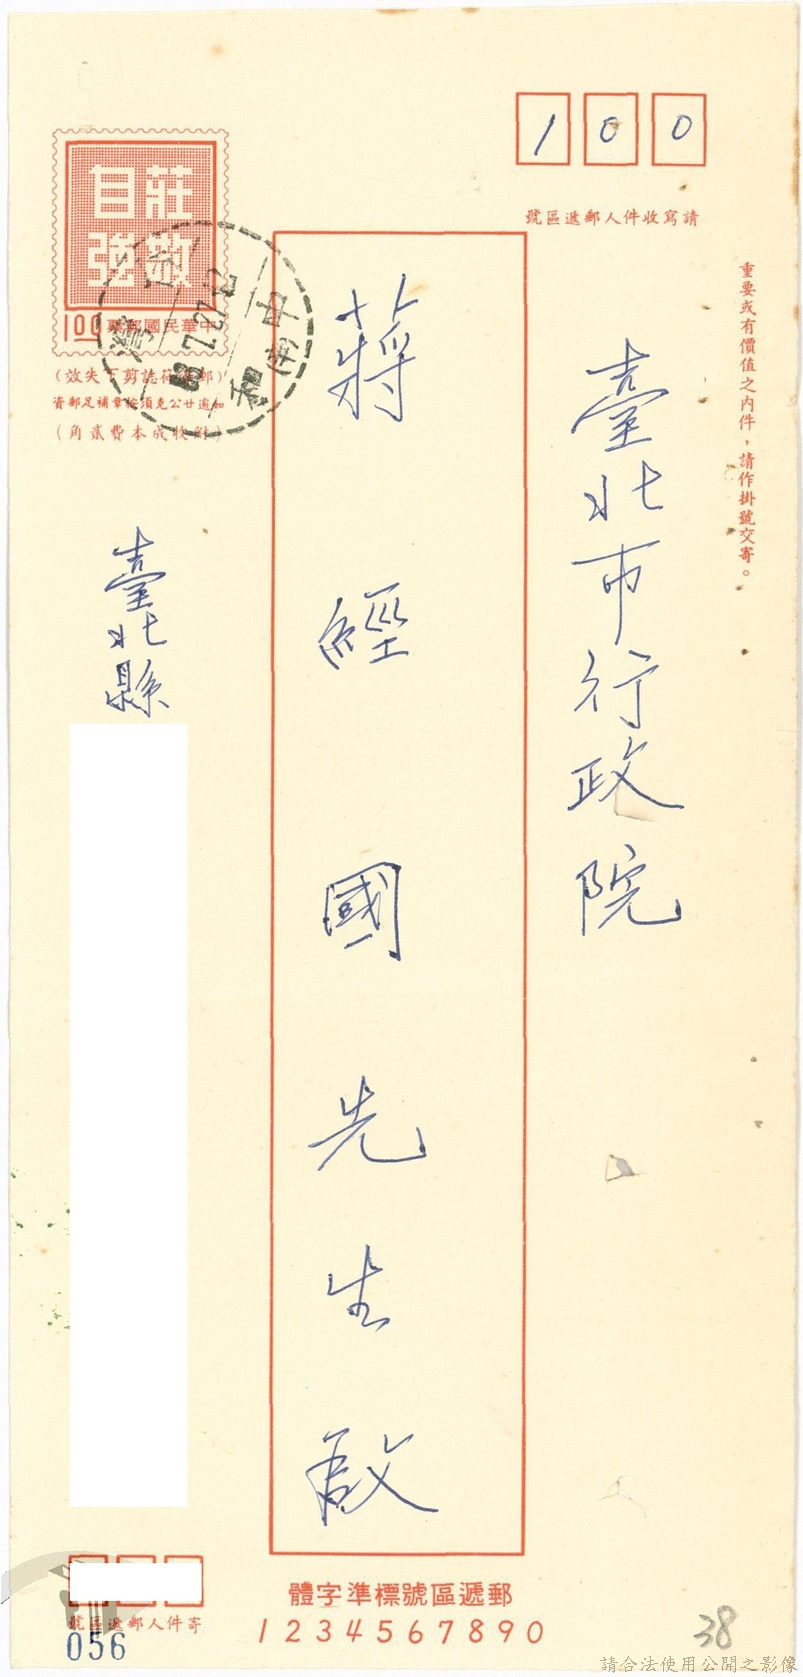 100
請寫收件人郵遞區號
重要或有價值之內件，請作掛號交寄。
臺北市行政院
蔣經國先生啟
莊敬
自強
中華民國郵票
1.00
台灣
中和(南)
(郵資符誌剪下失效)
如逾廿公克須按章補足郵資
(附收成本費貳角)
臺北縣
寄件人郵遞區號
056
郵遞區號標準字體
1234567890
38
請合法使用公開之影像